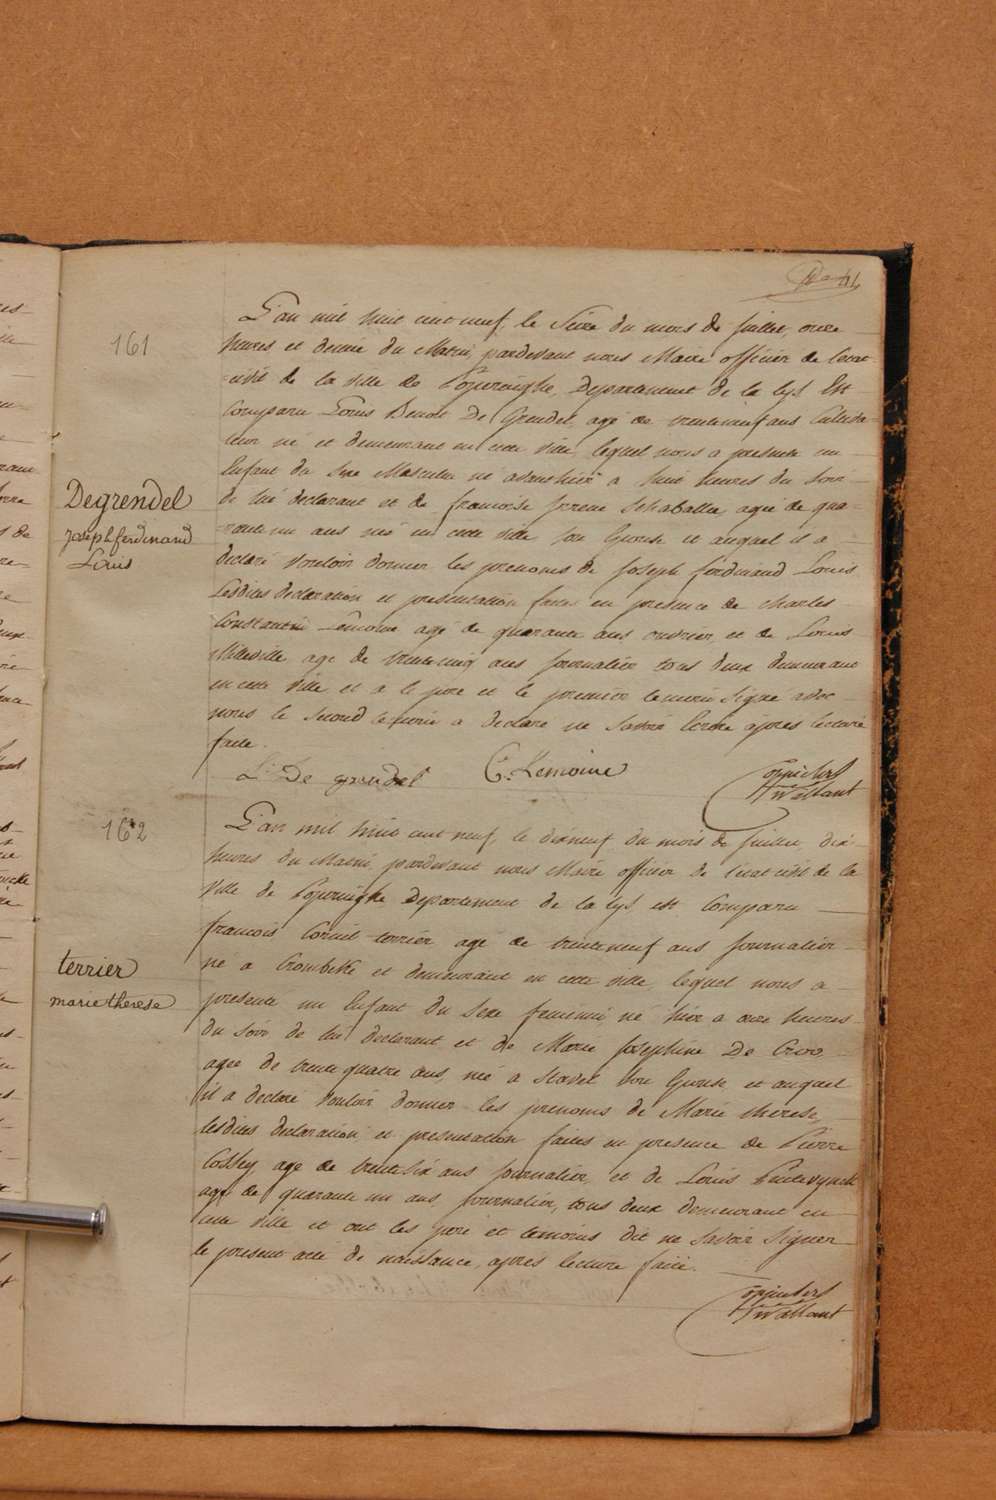 161
L'an mil huit cent neuf, le Seize du mois de juillet, onze
heures et demie du Matin, pardevant nous Maire officier de l'etat
civil de la ville de Poperinghe, Departement de la Lys Est
Comparu Louis Benoit De Grendel, agé de trenteneuf ans Cultiva-
teur né et demeurant en cette ville lequel nous a presenté un
Enfant du Sexe Masculin né avanthier a huit heures du Soir
de lui declarant et de francoise agée de qua-
rante un ans née en cette ville Son Epouse et auquel il a
declaré vouloir donner les prenoms de Joseph ferdinand Louis
Lesdites declaration et presentation faites en presence de Charles
Constantin Lemoine agé de quarante ans ouvrier, et de Louis
Milleville agé de trentecinq ans journalier tous deux demeurant
en cette ville et a le pere et le premier temoin Signé avec
nous le Second temoin a declaré ne Savoir Ecrire après lecture
faite.
Degrendel
joseph ferdinand
Louis
L: De grendel C. Lemoine
162
L'an mil huit cent neuf, le dixneuf du mois de juillet, dix
heures du Matin, pardevant nous Maire officier de l'etat civil de la
Ville de Poperinghe Departement de la Lys est Comparu
francois Cornil terrier agé de trenteneuf ans journalier
né a Crombeke et demeurant en cette ville, lequel nous a
presenté un Enfant du Sexe feminin né hier a onze heures
du Soir de lui declarant et de Marie Josephine De Croo
agée de trente quatre ans, née a Stavel Son Epouse, et auquel
il a declaré vouloir donner les prenoms de Marie therese,
lesdites declaration et presentation faites en presence de Pierre
Cossey, agé de trentesix ans journalier, et de Louis
agé de quarante un ans, journalier, tous deux demeurant en
cette ville et ont les pere et temoins dit ne Savoir Signer
le present acte de naissance, après lecture faite.
terrier
marie therese